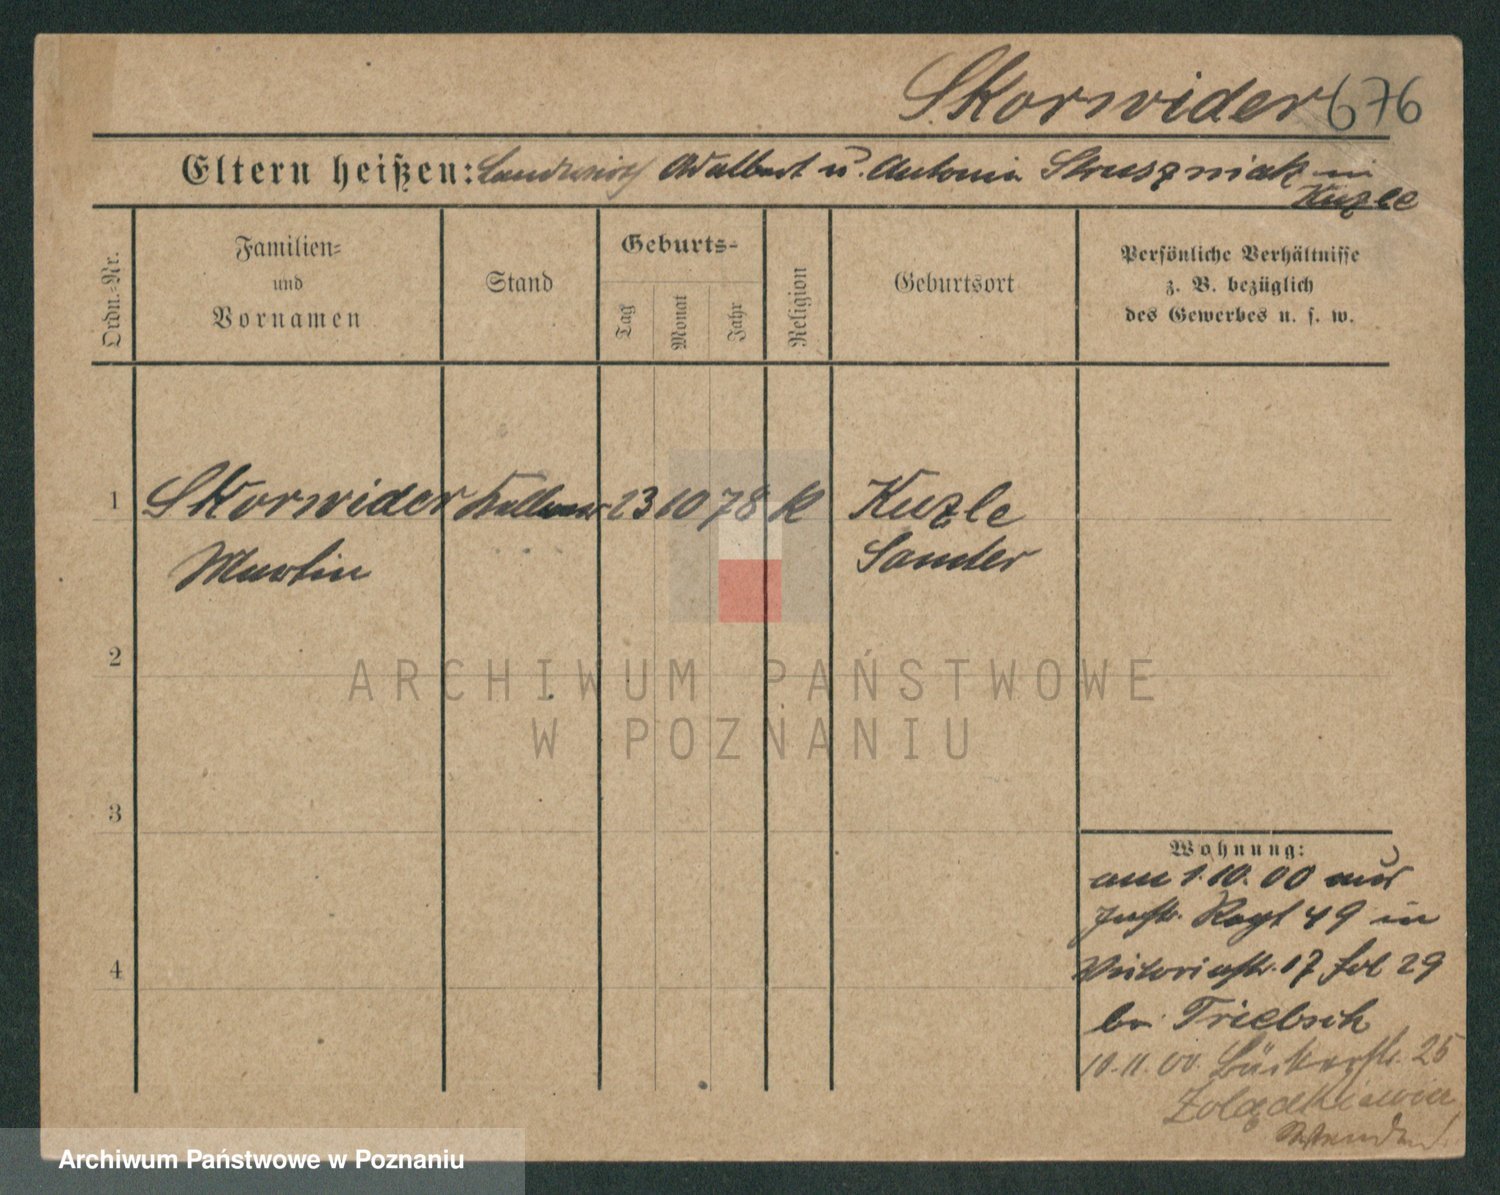 Skorwider 676
Eltern heißen: Landwirth Adalbert u. Antonia Skruszniak in
Kuzle
Ordn.-Nr.
Familien-
und
Vornamen
Stand
Geburts-
Tag
Monat
Jahr
Religion
Geburtsort
Persönliche Verhältnisse
z. B. bezüglich
des Gewerbes u. s. w.
1 Skorwider Kellner 23 10 78 K Kuzle
Martin Samter
2
ARCHIWUM PAŃSTWOWE
W POZNANIU
3
Wohnung:
am 1.10.00 aus
Inftr. Regt 49 in
Victoriastr. 17 fol 29
bei Triebsch
10.11.00. Bäckerstr. 25
4
Archiwum Państwowe w Poznaniu